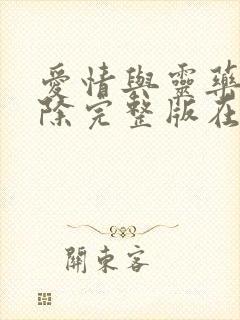 愛情與靈藥
除完整版在
關東客